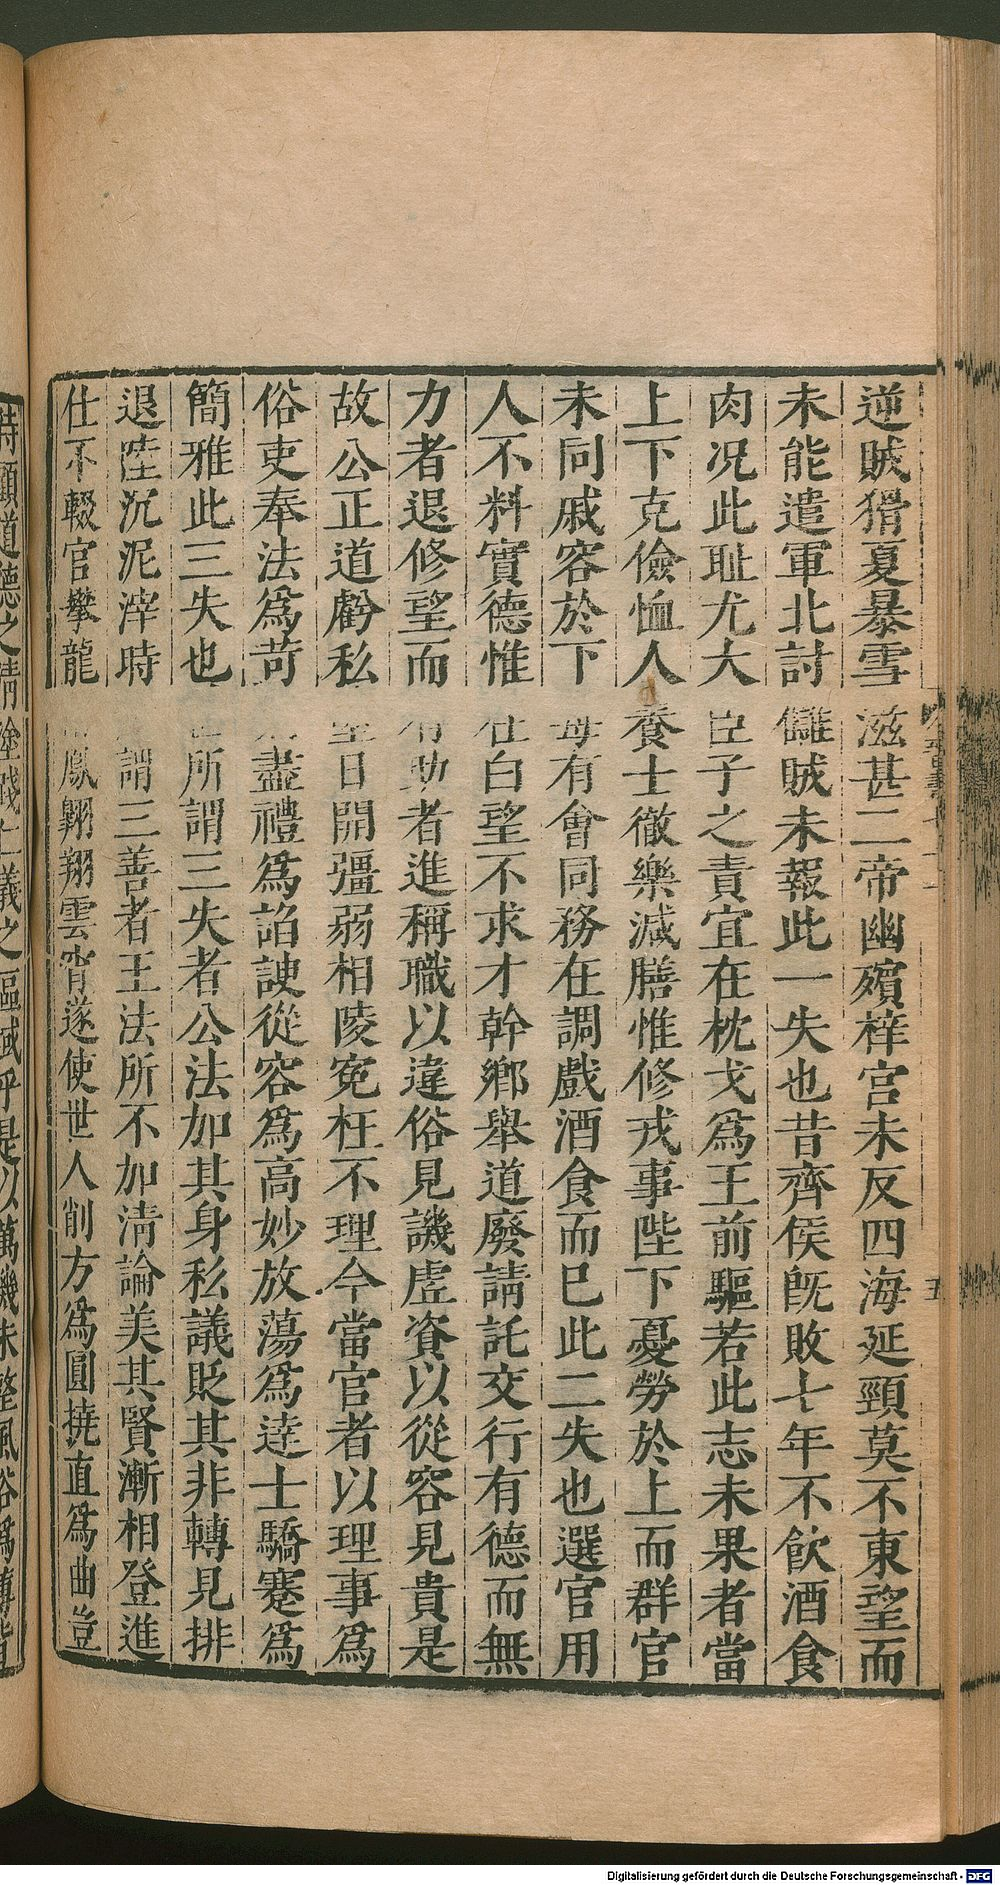 逆賊猾夏暴虐滋甚二帝幽殯梓宮未反四海延頸莫不東望而
未能遣軍北討讎賊未報此一失也昔齊侯既敗七年不飲酒食
肉况此耻尤大臣子之責宜在枕戈爲王前驅若此志未果者當
上下克儉恤人養士徹樂減膳惟修戎事陛下憂勞於上而群官
未同戚容於下每有會同務在調戲酒食而已此二失也選官用
人不料實德惟在白望不求才幹鄉舉道廢請託交行有德而無
力者退修望而有助者進稱職以違俗見譏虚資以從容見貴是
故公正道虧私塗日開彊弱相陵寃枉不理今當官者以理事爲
俗吏奉法爲苛刻盡禮爲諂諛從容爲高妙放蕩爲達士驕蹇爲
簡雅此三失也世所謂三失者公法加其身私議貶其非轉見排
退陸沉泥滓時所謂三善者王法所不加淸論美其賢漸相登進
仕不輟官攀龍附鳳翺翔雲霄遂使世人削方爲圓撓直爲曲豈
待顧道德之淸塗踐仁義之區域乎是以萬機未整風俗爲
五
Digitalisierung gefördert durch die Deutsche Forschungsgemeinschaft - DFG